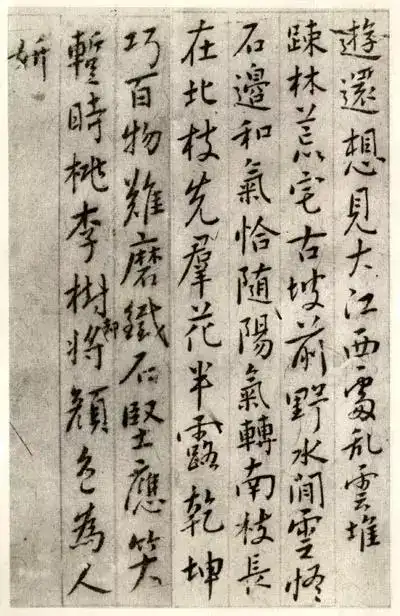 遊還想見大江西處乱雲堆
踈林荒宅古坡前野水閒雲怪
石邊和氣恰隨陽氣轉南枝長
在北枝先羣花半露乾坤
巧百物難磨鐵石堅應笑
暫時桃李樹却將顏色為人
妍